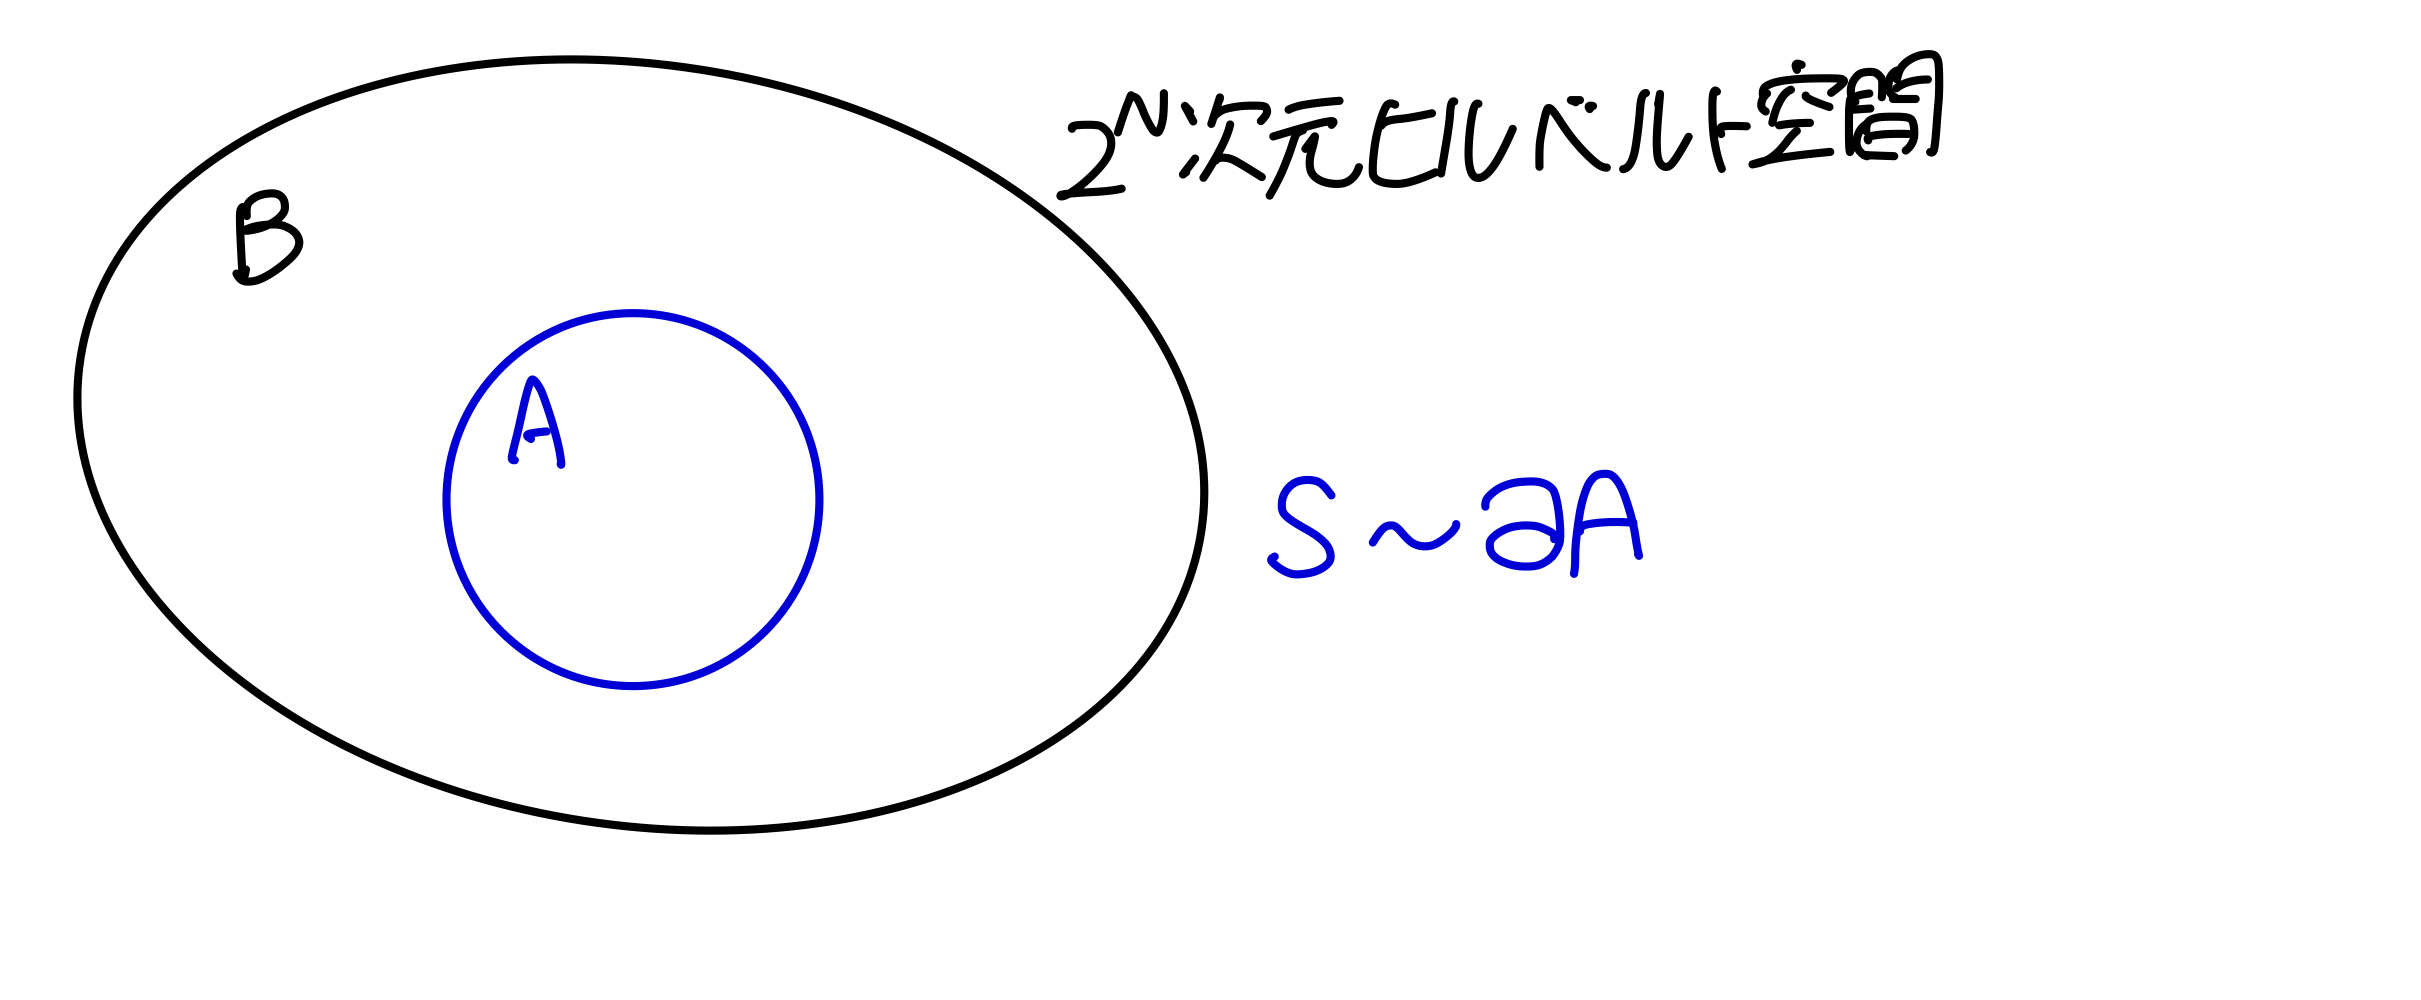 2^N次元ヒルベルト空間
B
A
S~∂A